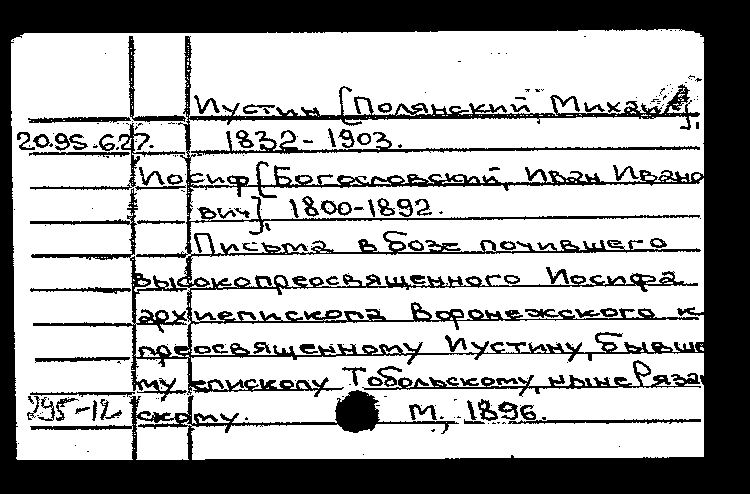 Иустин [Полянский, Михаил],
20.95.627. 1832-1903.
Иосиф [Богословский, Иван Ивано
вич], 1800-1892.
Письма в бозе почившего
высокопреосвященного Иосифа
архиепископа Воронежского к
преосвященному Иустину, бывше
му епископу Тобольскому, ныне Рязан
скому. М., 1896.
295-12